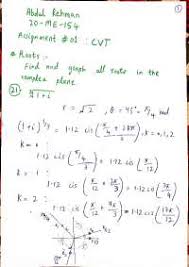 ①
Abdul Rehman
20-ME-154
Assignment # 01 : CVT
* Roots :-
Find and graph all roots in the
complex plane
21) ∛1+i
r = √2 , θ = 45° = π/4 rad
(1+i)^1/3 = 1.12 cis (π/4 + 2kπ / 3) k = 0,1,2
K = 0 :
1.12 cis (π/4 / 3) = 1.12 cis (π/12)
K = 1 :
1.12 cis (π/12 + 2π/3) = 1.12 cis (3π/4)
K = 2 :
1.12 cis (π/12 + 4π/3) = 1.12 cis (17π/12)